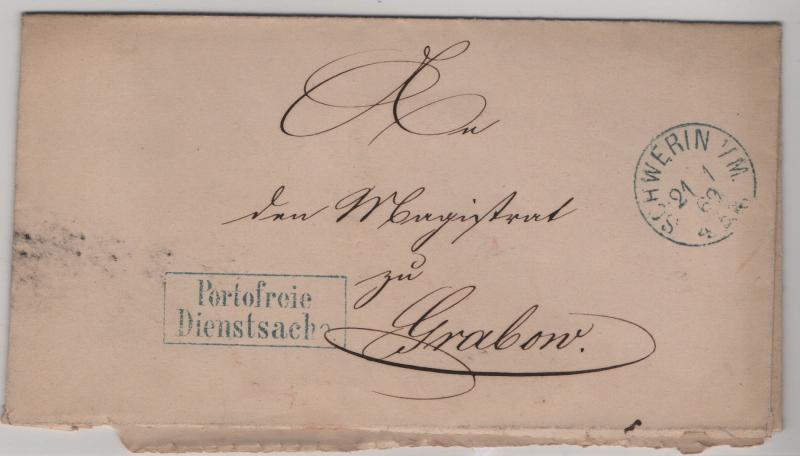 An
den Magistrat
zu
Grabow.
Portofreie
Dienstsache
SCHWERIN I/M.
21 1
69